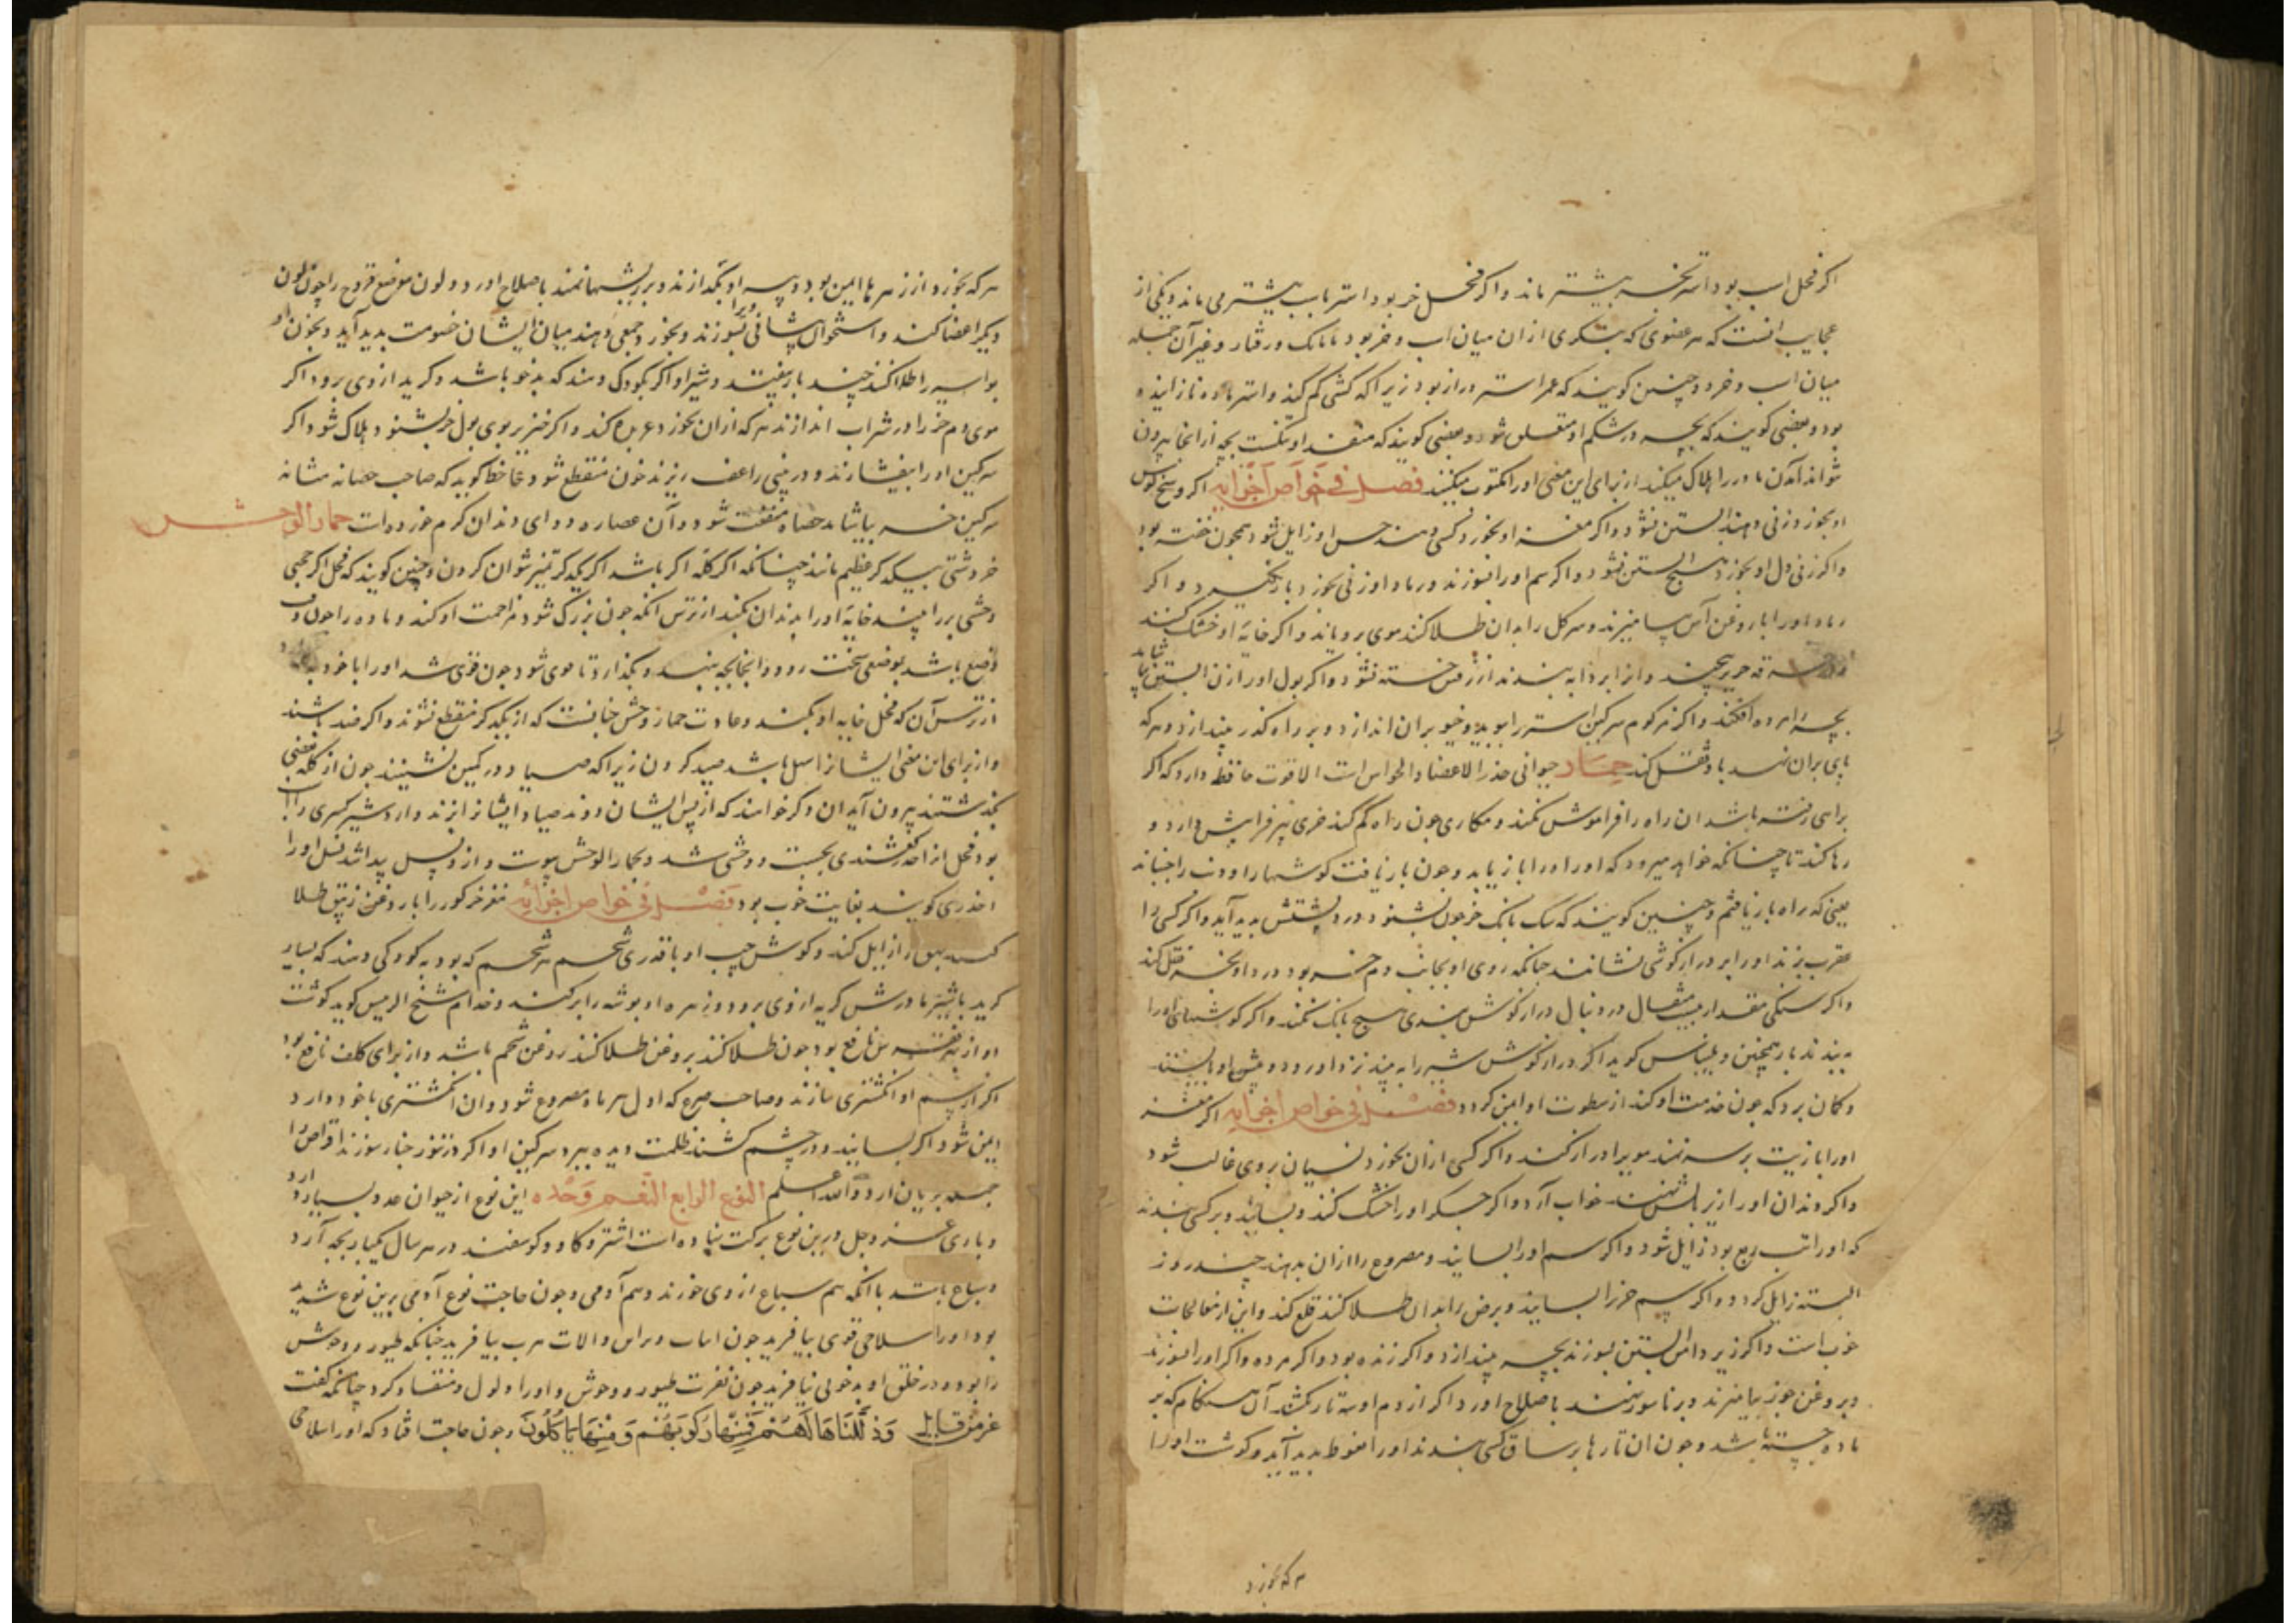 اکر فحل اسب بود استر نجر بیشتر ماند و اکر فحل خر بود استر باسب بیشتر می ماند و یکی از
عجایب آنست که هر عضوی که بنکری از ان میان اسب و خر بود تا بانک و رفتار و غیر آن جمله
میان اسب و خر و چنین کویند که عمر استر دراز بود زیرا که کشنی کم کند و استر ماده نازاینده
بود و بعضی کویند که بچه در شکم او متعلق شود و بعضی کویند که منفذ او تنکست بچه از انجا بیرون
نتواند آمدن مادر را هلاک میکند از برای این معنی او را مکتوب میکنند فصل فی خواص اجزایه اکر وسخ کوش
او بخورد زنی دهند آبستن نشود و اکر مغز او بخورد کسی دهند حس او زایل شود همچون خفته بود
و اکر زنی دل او بخورد هیچ آبستن نشود و اکر سم او را بسوزند و رماد او زنی بخورد بار نکیرد و اکر
رماد او را با روغن آس بیامیزند و سر کل را بدان طلا کنند موی برویاند و اکر خایه او خشک کنند
در خرقه حریر پیچند و از ابر دابه بندند از رفتن خسته نشود و اکر بول او را زن آبستن بیاشامد
بچه مرده افکند و اکر مزکوم سرکین استر را ببوید و خیو بران اندازد و بر راه کذر بیندازد و هر که
پای بران نهد با او نقل کند حمار حیوانی خدر الاعضا و الحواس است الا قوت حافظه دارد که اکر
براهی رفته باشد ان راه را فراموش نکند و مکاری چون راه کم کند خری پیر فرا پیش دارد و
رها کند تا چنانکه خواهد میرود که او راه را باز یابد و چون باز یافت کوشها را و دنب را جنباند
یعنی که راه باز یافتم و چنین کویند که سک بانک خر چون بشنود درد در پشتش بدید آید و اکر کسی را
عقرب بزند او را بر درازکوشی نشانند چنانکه روی او بجانب دم خر بود درد او بخر نقل کند
و اکر سنکی مقدار بیست مثقال در دنبال درازکوش بندی هیچ بانک نکند و اکر کوشهای او را
به بندند باز همچنین و بلیناس کوید اکر درازکوش شیر را به بیند نزد او رود و پیش او بایستد
و کمان برد که چون خدمت او کند از سطوت او ایمن کردد فصل فی خواص اجزایه اکر مغز
او را با زیت بر سر نهند موی را دراز کند و اکر کسی از ان بخورد نسیان بر وی غالب شود
و اکر دندان او را زیر بالش نهند خواب آرد و اکر جکر او را خشک کنند و بسایند و بر کسی بندند
که او را تب ربع بود زایل شود و اکر سم او را بسایند و مصروع را از ان بدهند چند روز
البته زایل کردد و اکر سم خر را بسایند و برص را بدان طلا کنند قلع کند و این از معالجات
خوب است و اکر زیر دامن آبستن بسوزند بچه بیندازد و اکر زنده بود و اکر مرده و اکر او را بسوزند
و بروغن جوز بیامیزند و بر ناسور نهند باصلاح اورد و اکر از دم او سه تار بکشند آن هنکام که بر
ماده جسته باشد و چون ان تارها بر ساق کسی بندند او را نعوظ بدید آید و کوشت او را
هر که بخورد
هر که بخورد از زهرها ایمن بود و پیه او بکدازند و بر ریشها نهند باصلاح اورد و لون موضع قروح را چون لون
دیکر اعضا کند و استخوان پیشانی ویرا بسوزند و بخورد جمعی دهند میان ایشان خصومت بدید آید و بخون او
بواسیر را طلا کنند چند بار بیفتد و شیر او اکر بکودکی دهند که بدخو باشد و کرید از وی برود اکر
موی دم خر را در شراب اندازند هر که از ان بخورد عربده کند و اکر خنزیر بوی بول خر بشنود هلاک شود اکر
سرکین او را بیفشارند و در بینی راعف ریزند خون منقطع شود جاحظ کوید که صاحب حصاة مثانه
سرکین خر بیاشامد حصاة مفتت شود و آن عصاره دوای دندان کرم خورده است حمار الوحش
خر دشتی بیکدیکر عظیم مانند چنانکه اکر کله اکر باشد اکر یکدیکر تمیز نتوان کردن و چنین کویند که فحل اکر جحشی
وحشی نر را بیند خایه او را بدندان بکند از ترس آنکه چون بزرک شود مزاحمت او کند و ماده را چون وقت
وضع باشد بموضعی سخت رود و انجا بچه بنهد و بکذارد تا قوی شود چون قوی شد او را با خود برد
از ترس آن که فحل خایه او بکند و عادت حمار وحش چنانست که از یکدیکر منقطع نشوند و اکر صد باشند
و از برای این معنی ایشانرا سهل باشد صید کردن زیرا که صیاد در کمین نشیند چون از کله بعضی
بکذشتند بیرون آید ان دکر خواهند که از پس ایشان روند صیاد ایشانرا بزند و اردشیر کسری را اسب
بود فحل از آخر بجست و وحشی شد و بحمار الوحش پیوست و از و نسل پیدا شد نسل او را
اخدری کویند بغایت خوب بود فصل فی خواص اجزائه مغز خر کور را با روغن زنبق طلا
کنند بهق را زایل کند و کوش چپ او با قدری شحم هر شحم که بود به کودکی دهند که بسیار
کرید باشیر مادرش کریه از وی برود و زهره او بوشه را بر کند شیخ الرییس کوید کوشت
او از نقرس نافع بود چون طلا کنند بروغن طلا کنند روغن شحم باشد و از برای کلف نافع بود
اکر از سم او انکشتری سازند و صاحب صرع که اول هر ماه مصروع شود و ان انکشتری با خود دارد
ایمن شود اکر بسایند و در چشم کشند ظلمت دیده ببرد سرکین او اکر در تنور خباز بسوزند اقراص را
جمله بریان ارد و الله اعلم النوع الرابع النعم وحده این نوع از حیوان عدد بسیار دارد
و باری عز و جل درین نوع برکت نهاده است اشتر و کاو و کوسفند در هر سال یکبار بچه آرد
و مباح باشد با آنکه هم سباع از وی خورند و هم آدمی و چون حاجت نوع آدمی برین نوع شدید
بود او را سلاحی قوی نیافرید چون انیاب و براثن و الات حرب نیافرید چنانکه طیور و وحوش
را بود و در خلق او بدخوئی نیافرید چون نفرت طیور و وحوش و او را ذلول و منقاد کرد چنانکه کفت
عز من قایل وَذَلَّلْنَاهَا لَهُمْ فَمِنْهَا رَكُوبُهُمْ وَمِنْهَا يَأْكُلُونَ و چون حاجت افتاد که او را سلاحی